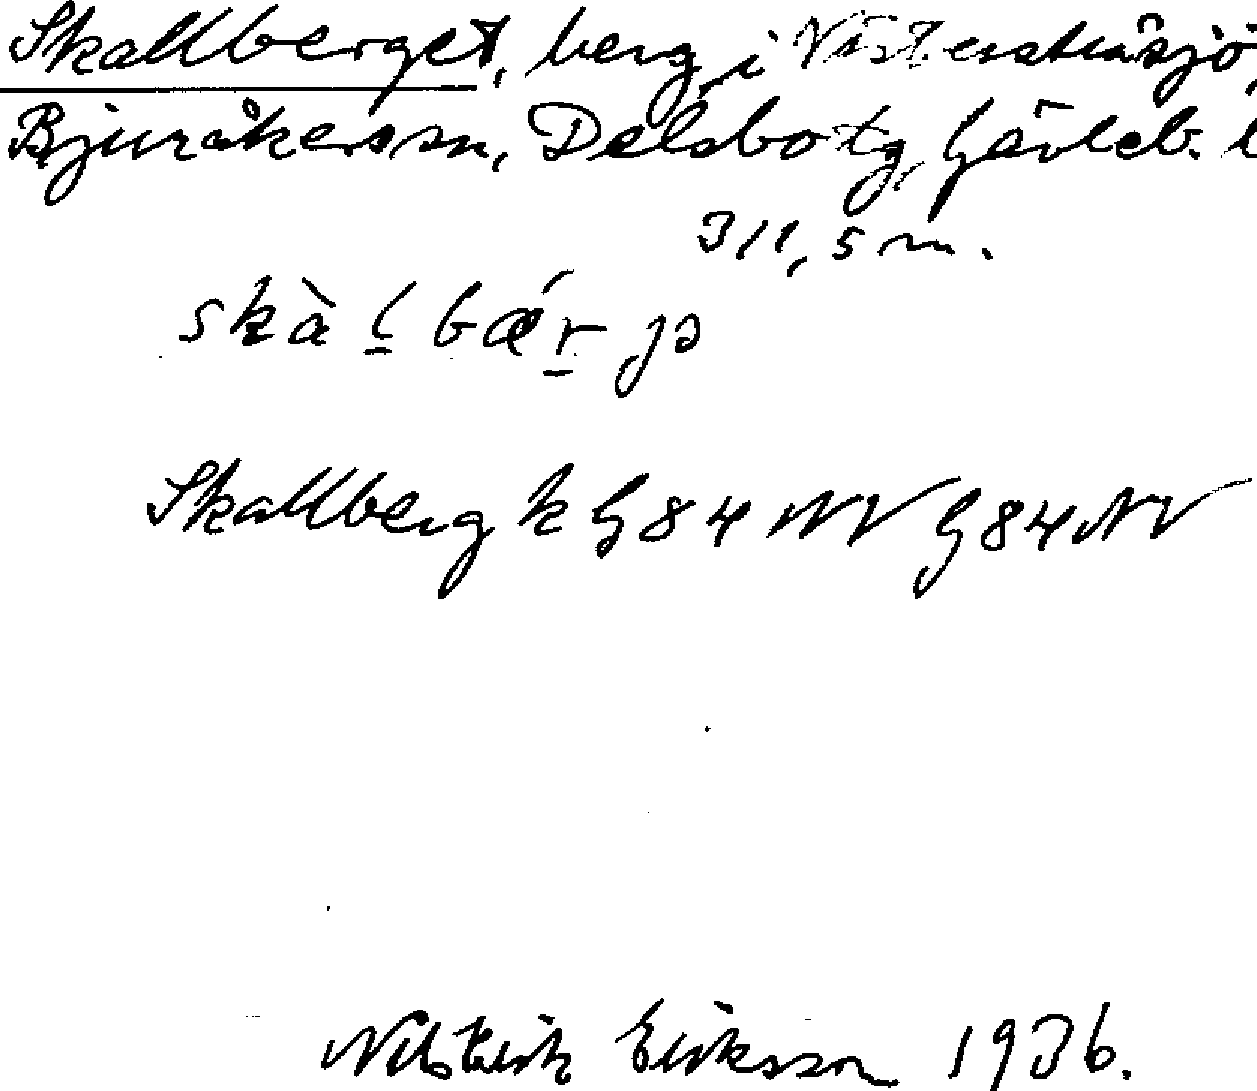 Skallberget, berg, i Västerstråsjö,
Bjuråkers sn, Delsbo tg, Gävleb. l
311,5 m.
skàl bǽr jə
Skallberg k G 84 NV G 84 NV
Nils Erik Eriksson 1936.